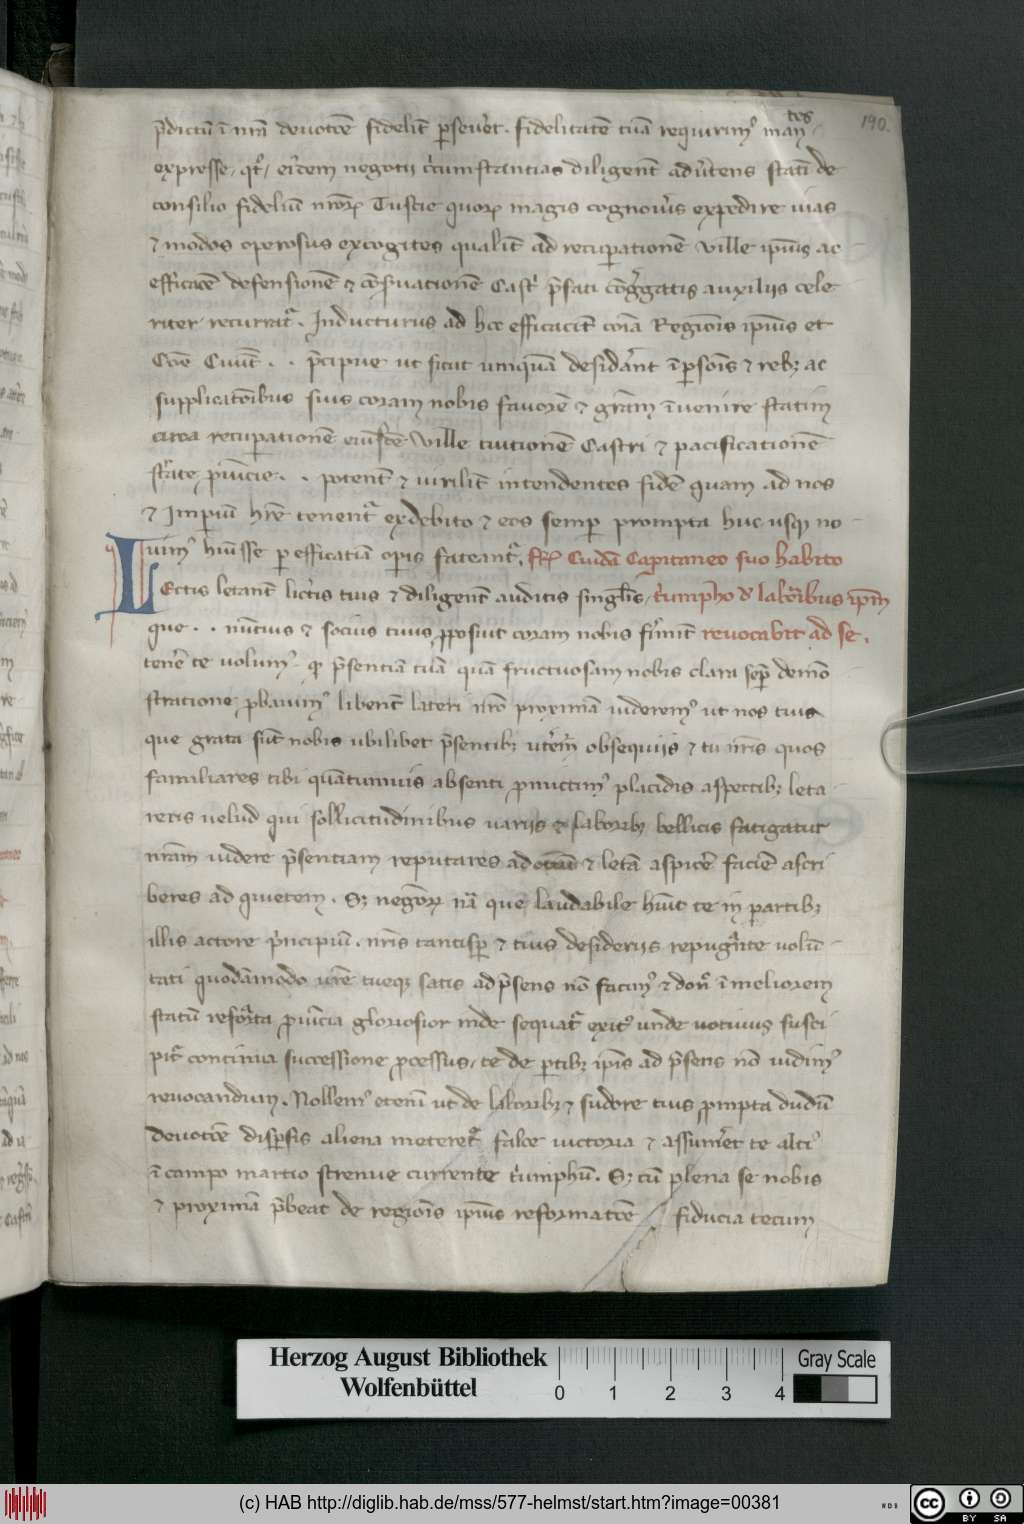 190.
p̄dictū ī nr̄m deuotōe fidelit̄ p̱seueret. fidelitatē tuā requirimꝰ man
tes
expresse, qt̄ꝰ, eiꝰdem negotij circumstantias diligent̄ aduertens statī de
consilio fideliū nr̄oꝝ Tuscie quoꝝ magis cognoueris expedire vias
⁊ modos operosus excogites qualit̄ ad recuperationē ville ipius ac
efficacē defensionē ⁊ cōseruationē Castri p̄fati cōgregatis auxilijs cele
riter recurrat̄. Inducturus ad hoc efficacit̄ coīa Regionis ipius et
ut sicut unquā desiderant ī p̱sonis ⁊ rebꝫ ac
supplicatōibus suis coram nobis fauorē ⁊ grām īuenire statim
circa recuperationē eiusdē Ville tuitionē Castri ⁊ pacificationē
potent̄ ⁊ virilit̄ intendentes fidē quam ad nos
⁊ Imperiū hr̄e tenent̄ ex debito ⁊ eos semp̱ prompta huc usqꝫ no
uimꝰ huisse p̱ efficatiā op̱is fateant̄. Cuidā Capitaneo suo habito
LEctis letant̄ lr̄is tuis ⁊ diligent̄ auditis singlis, triumpho de laboribus ipm
que nūtius ⁊ socius tuus p̱posuit coram nobis reuocabit ad se.
te volumꝰ p̄sentiā tuā quā fructuosam nobis clara sep̱ demō
stratione p̱bauimꝰ libent̄ lateri nr̄o proximā videremꝰ ut nos tua
que grata sūt nobis ubilibet p̄sentibꝫ obsequijs ⁊ tu nr̄is quos
familiares tibi quātumuis absenti p̱mittimꝰ placidis aspectibꝫ leta
reris velud qui sollicitudinibus varijs ⁊ laboribꝫ bellicis fatigatur
nr̄am videre p̄sentiam reputares ad ⁊ letā aspicere faciē ascri
beres ad quietem. Sꝫ negocioꝝ nā que laudabile huit te in partibꝫ
illis actore principiū. nr̄is tantisp̱ ⁊ tuis desiderijs repugnāte volū
tati quodāmodo nr̄e tueqꝫ satis ad p̄sens nō facimꝰ ⁊ donec ī meliorem
statū reformata prouincia gloriosior inde sequat̄ exitꝰ unde votiuus susci
pit̄ continua successione processus, te de p̱tibꝫ ipis ad p̄sens nō vidimꝰ
reuocandum. Nollemꝰ etem ut de laboribꝫ ⁊ sudore tuis prompta dudū
deuotōe disp̱sis aliena meteret̄ falce victoria ⁊ assumeret te altiꝰ
ī campo martio strenue currente triumphū. Sꝫ cū plena se nobis
⁊ proximā p̄beat de regionis ipius reformatōe fiducia tecum
Herzog August Bibliothek
Wolfenbüttel
0 1 2 3 4
Gray Scale
(c) HAB http://diglib.hab.de/mss/577-helmst/start.htm?image=00381
WDB
cc
BY SA